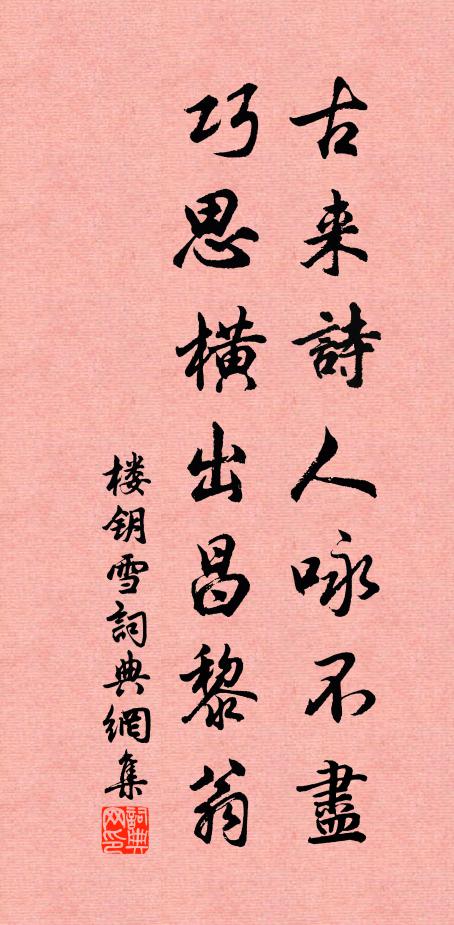 古来詩人咏不盡
巧思橫出昌黎翁
楼钥雪詞典網集
詞典网印